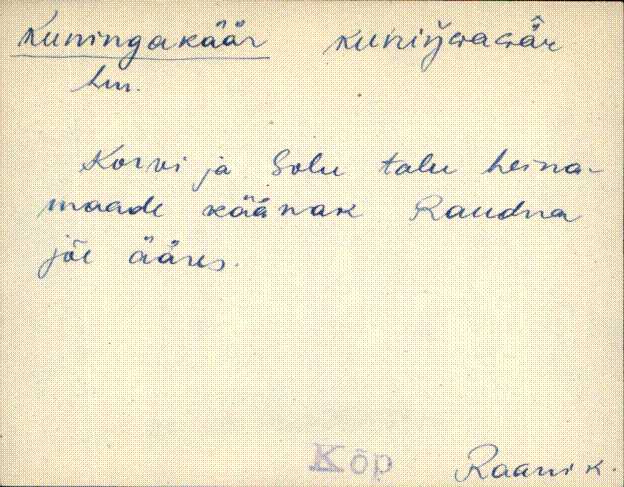 Kuningakäär kuniŋɢaɢär
hm.
Korvi ja Solu talu heina-
maade käänak Raudna
jõe ääres.
Kõp Raani k.